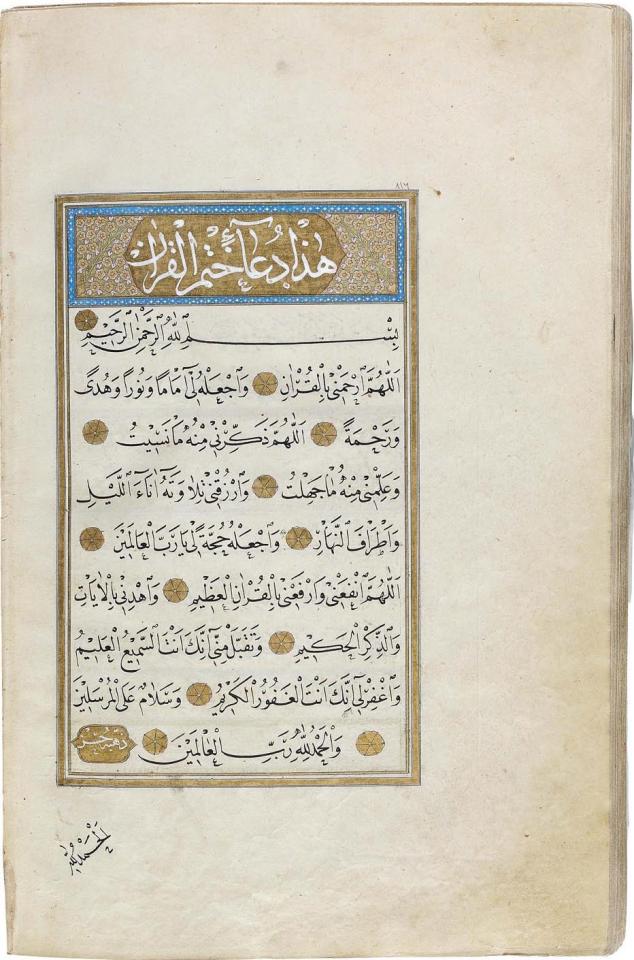 ٨١٦
هٰذَا دُعَآءُ خَتْمِ الْقُرْاٰنِ
بِسْمِ اللّٰهِ الرَّحْمٰنِ الرَّحِيْمِ
اَللّٰهُمَّ ارْحَمْنِيْ بِالْقُرْاٰنِ وَاجْعَلْهُ لِيْٓ اِمَامًا وَنُورًا وَهُدًى
وَرَحْمَةً اَللّٰهُمَّ ذَكِّرْنِيْ مِنْهُ مَا نَسِيْتُ
وَعَلِّمْنِيْ مِنْهُ مَا جَهِلْتُ وَارْزُقْنِيْ تِلَاوَتَهُ اٰنَآءَ اللَّيْلِ
وَاَطْرَافَ النَّهَارِ وَاجْعَلْهُ حُجَّةً لِيْ يَا رَبَّ الْعَالَمِيْنَ
اَللّٰهُمَّ انْفَعْنِيْ وَارْفَعْنِيْ بِالْقُرْاٰنِ الْعَظِيْمِ وَاهْدِنِيْ بِالْاٰيَاتِ
وَالذِّكْرِ الْحَكِيْمِ وَتَقَبَّلْ مِنِّيْ اِنَّكَ اَنْتَ السَّمِيْعُ الْعَلِيْمُ
وَاغْفِرْ لِيْ اِنَّكَ اَنْتَ الْغَفُورُ الْكَرِيْمُ وَسَلَامٌ عَلَى الْمُرْسَلِيْنَ
وَالْحَمْدُ لِلّٰهِ رَبِّ الْعَالَمِيْنَ
وَالْحَمْدُ لِلّٰهِ